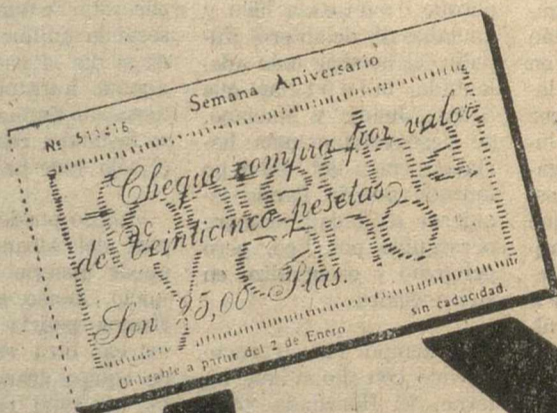 Semana Aniversario
Nº 513416
Cheque compra por valor
de Veinticinco pesetas
Son 25,00 Ptas.
Utilizable a partir del 2 de Enero sin caducidad.